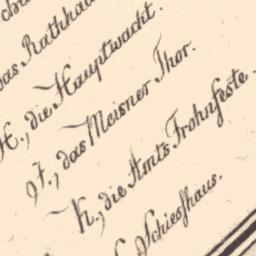 das Rathhau
H., die Hauptwacht.
I., das Meisner Thor.
K., die Amts Frohnfeste.
Schiesshaus.